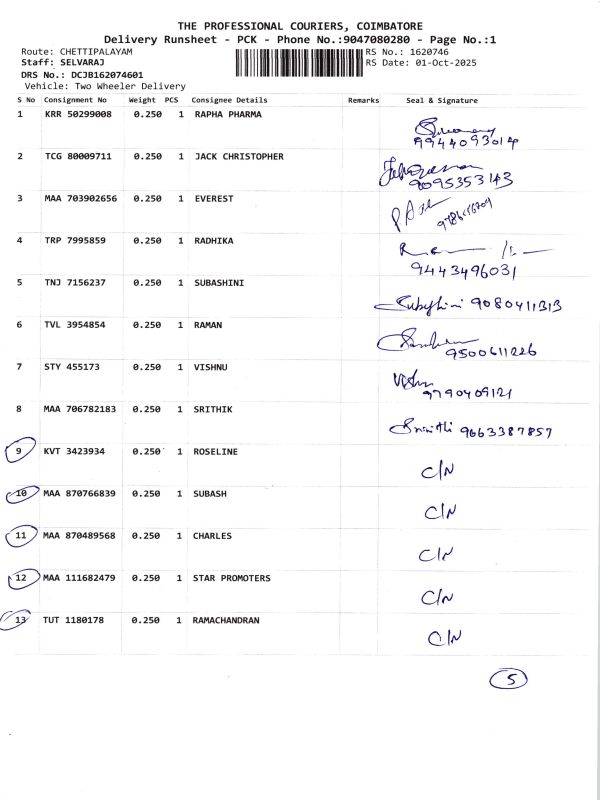 THE PROFESSIONAL COURIERS, COIMBATORE
Delivery Runsheet - PCK - Phone No.:9047080280 - Page No.:1
Route: CHETTIPALAYAM RS No.: 1620746
Staff: SELVARAJ RS Date: 01-Oct-2025
DRS No.: DCJB162074601
Vehicle: Two Wheeler Delivery
S No Consignment No Weight PCS Consignee Details Remarks Seal & Signature
1 KRR 50299008 0.250 1 RAPHA PHARMA
9944093014
2 TCG 80009711 0.250 1 JACK CHRISTOPHER
9095353143
3 MAA 703902656 0.250 1 EVEREST
4 TRP 7995859 0.250 1 RADHIKA
9443496031
5 TNJ 7156237 0.250 1 SUBASHINI
9080411313
6 TVL 3954854 0.250 1 RAMAN
9500611226
7 STY 455173 0.250 1 VISHNU
9790409121
8 MAA 706782183 0.250 1 SRITHIK
9663387857
9 KVT 3423934 0.250 1 ROSELINE
C/N
10 MAA 870766839 0.250 1 SUBASH
C/N
11 MAA 870489568 0.250 1 CHARLES
C/N
12 MAA 111682479 0.250 1 STAR PROMOTERS
C/N
13 TUT 1180178 0.250 1 RAMACHANDRAN
C/N
5